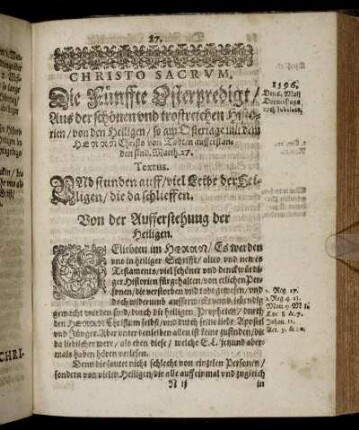 27.
CHRISTO SACRVM.
Die Fünffte Osterpredigt/
Aus der schönen vnd trostreichen Histo-
rien/ von den Heiligen/ so am Ostertage mit dem
HERRN Christo von Todten aufferstan-
den sind. Matth. 27.
1596.
TEXTUS.
VNd stunden auff/ viel Leibe der Hei-
ligen/ die da schlieffen.
Von der Aufferstehung der
Heiligen.
GEliebten im HERRN/ Es werden
vns in heiliger Schrifft/ altes vnd newes
Testaments/ viel schöner vnd denckwürdi-
ger Historien fürgehalten/ von etlichen Per-
sonen/ die verstorben vnd todt gewesen/ vnd
doch widerumb aufferwecket vnd lebendig
gemacht worden sind/ durch die heiligen Propheten/ durch
den HERRN Christum selbst/ vnd durch seine liebe Apostel
vnd Jünger. Aber vnter denselben allen ist keine zufinden/ die
da lieblicher were/ als eben diese/ welche E. L. jetzund aber-
mals haben hören verlesen.
1. Reg. 17.
2. Reg. 4. 13.
Matt. 9.
Luc. 8. & 7.
Johan. 11.
Act. 9. & 20.
Denn die lautet nicht schlecht von einzelen Personen/
sondern von vielen Heiligen/ die alle auff einmal vnd zugleich
N ij
in
CHRI-